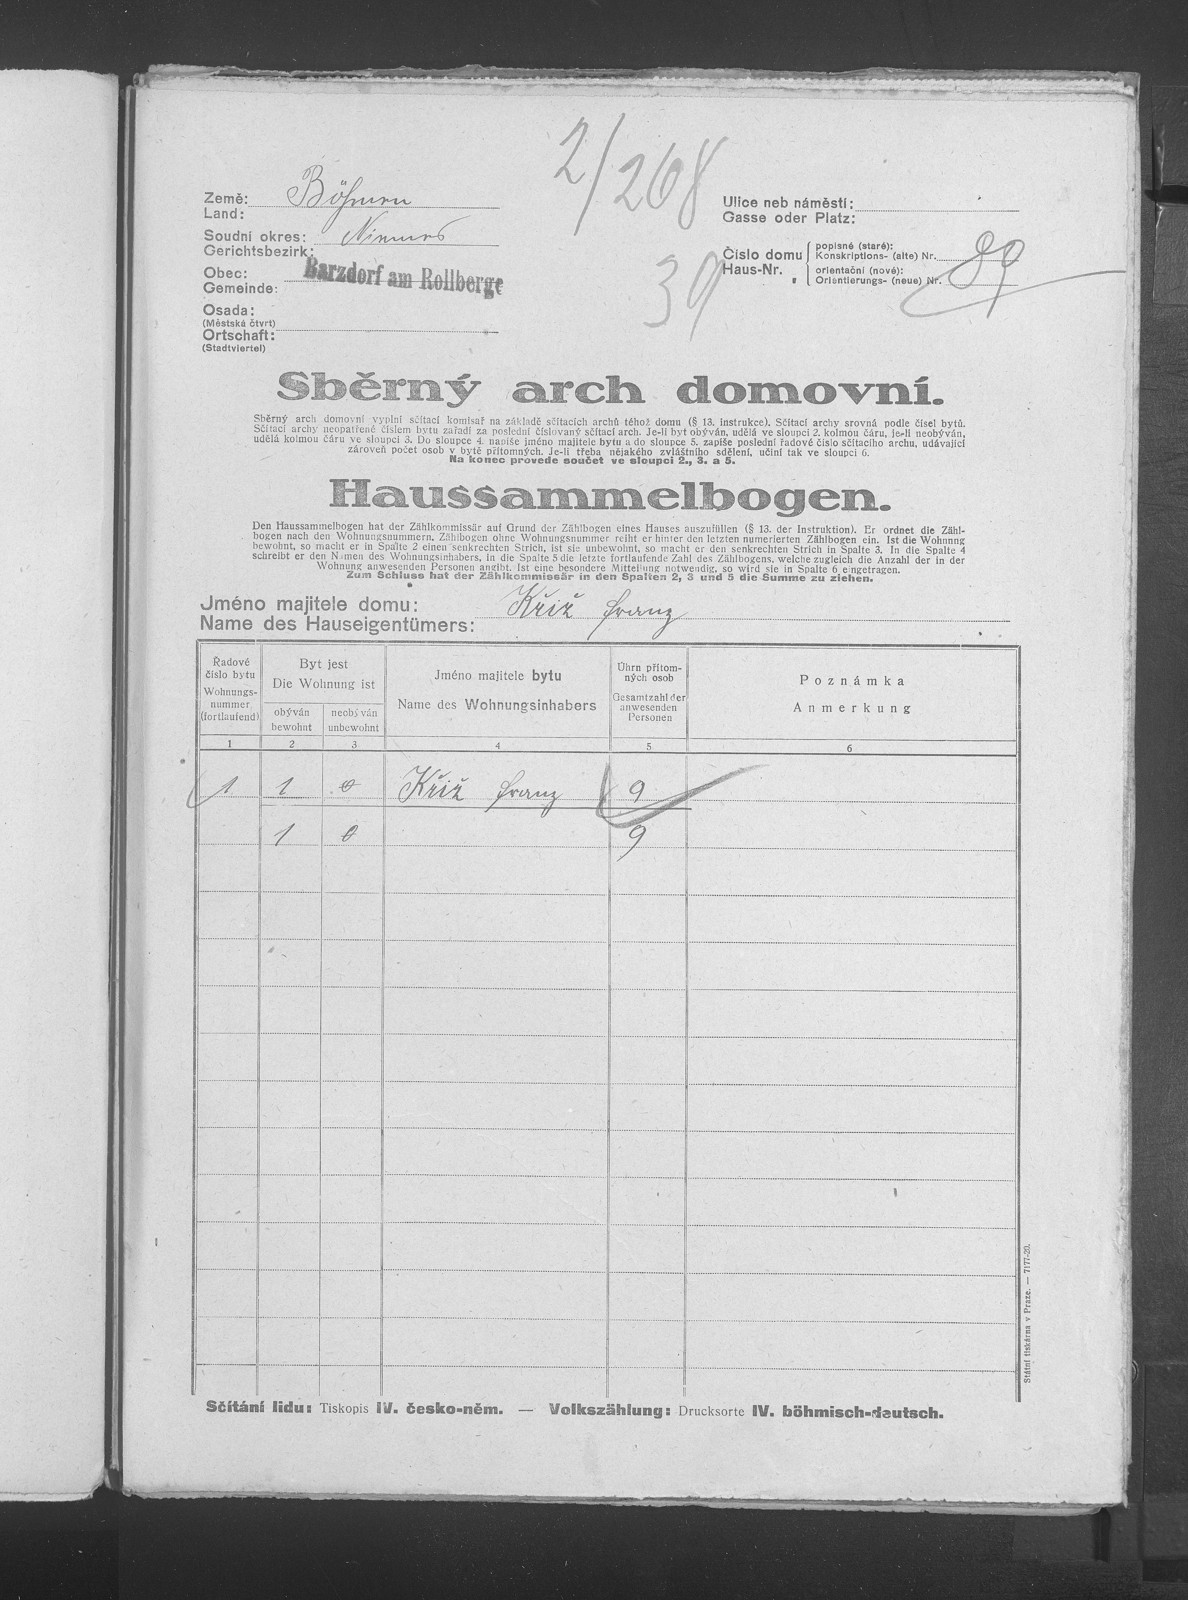 2/268
39
Země: Böhmen
Land:
Soudní okres: Niemes
Gerichtsbezirk:
Obec: Barzdorf am Rollberge
Gemeinde:
Osada:
(Městská čtvrt)
Ortschaft:
(Stadtviertel)
Ulice neb náměstí:
Gasse oder Platz:
Číslo domu
Haus-Nr.
popisné (staré):
Konskriptions- (alte) Nr. 89
orientační (nové):
Orientierungs- (neue) Nr.
Sběrný arch domovní.
Sběrný arch domovní vyplní sčítací komisař na základě sčítacích archů téhož domu (§ 13. instrukce). Sčítací archy srovná podle čísel bytů.
Sčítací archy neopatřené číslem bytu zařadí za poslední číslovaný sčítací arch. Je-li byt obýván, udělá ve sloupci 2. kolmou čáru, je-li neobýván,
udělá kolmou čáru ve sloupci 3. Do sloupce 4. napíše jméno majitele bytu a do sloupce 5. zapíše poslední řadové číslo sčítacího archu, udávající
zároveň počet osob v bytě přítomných. Je-li třeba nějakého zvláštního sdělení, učiní tak ve sloupci 6.
Na konec provede součet ve sloupci 2., 3. a 5.
Haussammelbogen.
Den Haussammelbogen hat der Zählkommissär auf Grund der Zählbogen eines Hauses auszufüllen (§ 13. der Instruktion). Er ordnet die Zähl-
bogen nach den Wohnungsnummern. Zählbogen ohne Wohnungsnummer reiht er hinter den letzten numerierten Zählbogen ein. Ist die Wohnnng
bewohnt, so macht er in Spalte 2 einen senkrechten Strich, ist sie unbewohnt, so macht er den senkrechten Strich in Spalte 3. In die Spalte 4
schreibt er den Namen des Wohnungsinhabers, in die Spalte 5 die letzte fortlaufende Zahl des Zählbogens, welche zugleich die Anzahl der in der
Wohnung anwesenden Personen angibt. Ist eine besondere Mitteilung notwendig, so wird sie in Spalte 6 eingetragen.
Zum Schluss hat der Zählkommissär in den Spalten 2, 3 und 5 die Summe zu ziehen.
Jméno majitele domu: Křiž Franz
Name des Hauseigentümers:
Řadové číslo bytu
Wohnungs-nummer (fortlaufend)
Byt jest
Die Wohnung ist
obýván
bewohnt
neobýván
unbewohnt
Jméno majitele bytu
Name des Wohnungsinhabers
Úhrn přítom-ných osob
Gesamtzahl der anwesenden Personen
Poznámka
Anmerkung
1 2 3 4 5 6
1 1 0 Křiž Franz 9
1 0 9
Státní tiskárna v Praze. — 7177-20.
Sčítání lidu: Tiskopis IV. česko-něm. — Volkszählung: Drucksorte IV. böhmisch-deutsch.